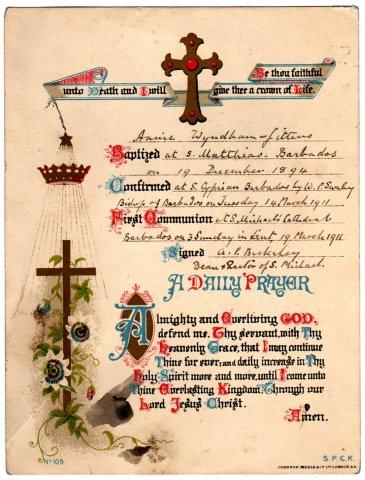 Be thou faithful
unto Death and I will give thee a crown of Life.
Annie Wyndham Gittens
Baptized at S. Matthias. Barbados
on 19 December 1894
Confirmed at S. Cyprian Barbados by W. P. Swaby
Bishop of Barbados on Tuesday 14 March 1911
First Communion at S. Michael's Cathedral
Barbados on 3 Sunday in Lent, 19 March 1911
Signed A. P. Berkeley
Dean & Rector of S. Michael
A DAILY PRAYER
Almighty and Everliving GOD,
defend me, Thy servant, with Thy
Heavenly Grace, that I may continue
Thine for ever: and daily increase in Thy
Holy Spirit more and more, until I come unto
Thine Everlasting Kingdom Through our
Lord Jesus Christ.
Amen.
No. 109.
S.P.C.K.
JOHNSON, RIDDLE & Co LTD LONDON. S.E.